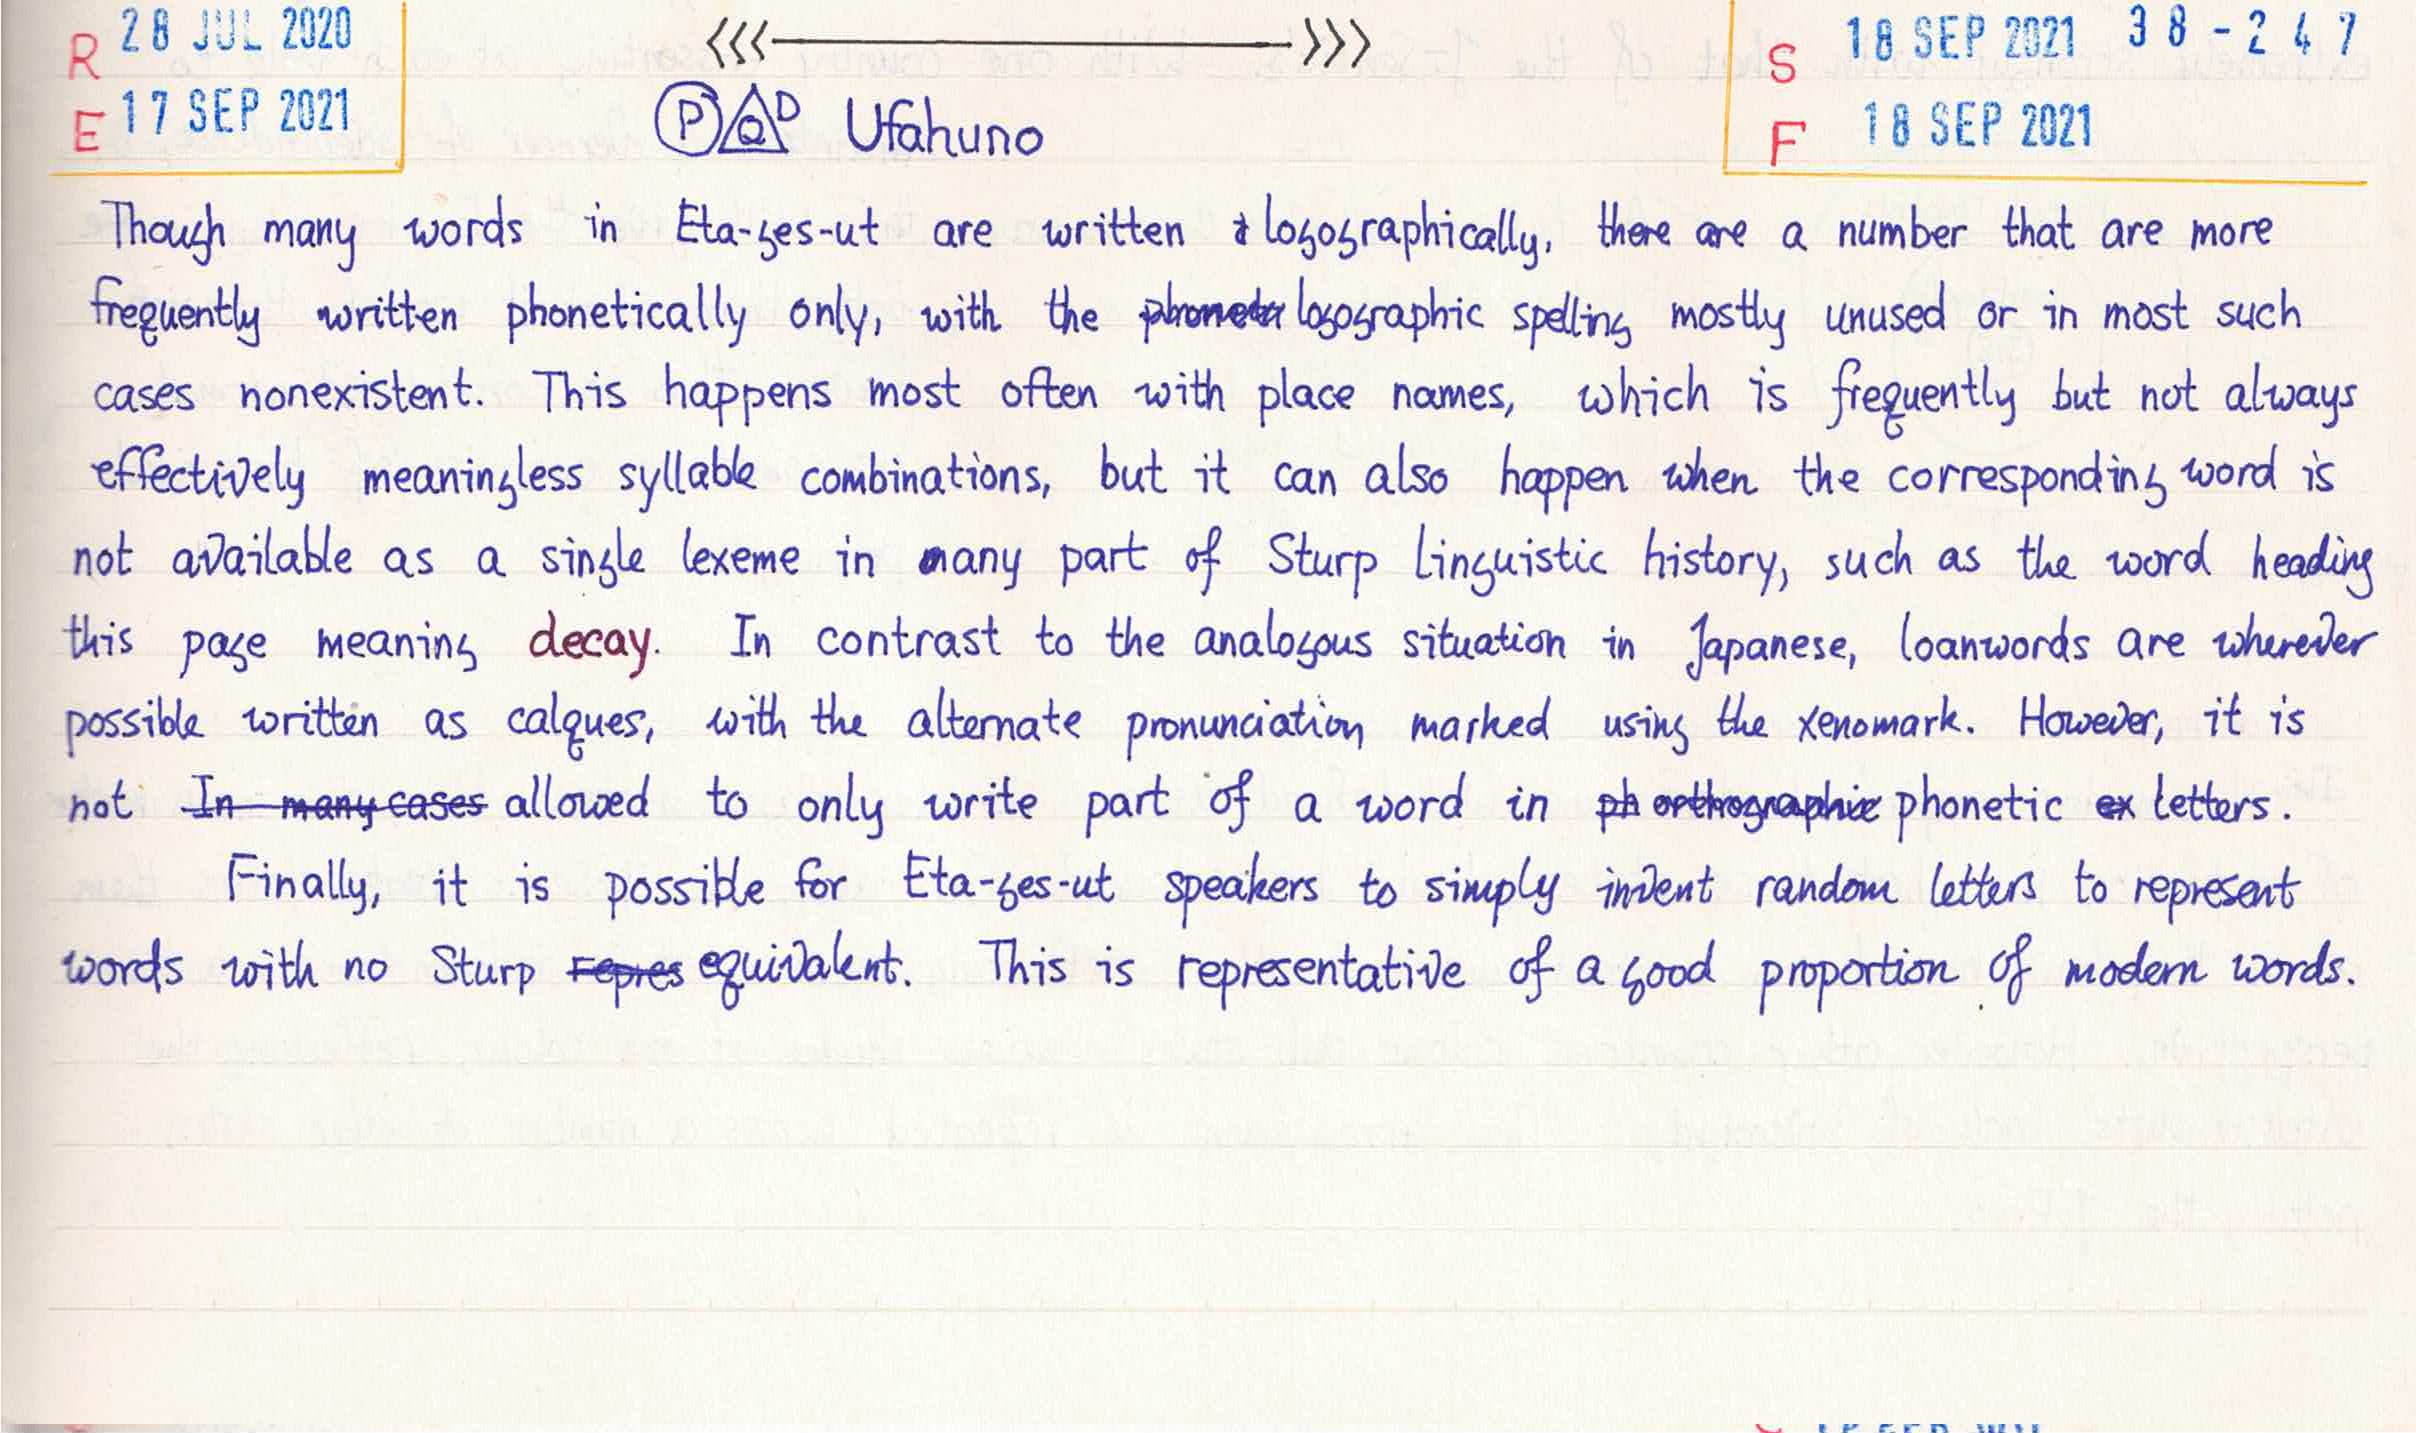 R 28 JUL 2020
E 17 SEP 2021
S 18 SEP 2021 38-247
F 18 SEP 2021
P Q D Ufahuno
Though many words in Eta-ges-ut are written logographically, there are a number that are more
frequently written phonetically only, with the phonetu logographic spelling mostly unused or in most such
cases nonexistent. This happens most often with place names, which is frequently but not always
effectively meaningless syllable combinations, but it can also happen when the corresponding word is
not available as a single lexeme in many part of Sturp linguistic history, such as the word heading
this page meaning decay. In contrast to the analogous situation in Japanese, loanwords are wherever
possible written as calques, with the alternate pronunciation marked using the xenomark. However, it is
not In many cases allowed to only write part of a word in ph orthographic phonetic ex letters.
Finally, it is possible for Eta-ges-ut speakers to simply invent random letters to represent
words with no Sturp repres equivalent. This is representative of a good proportion of modern words.